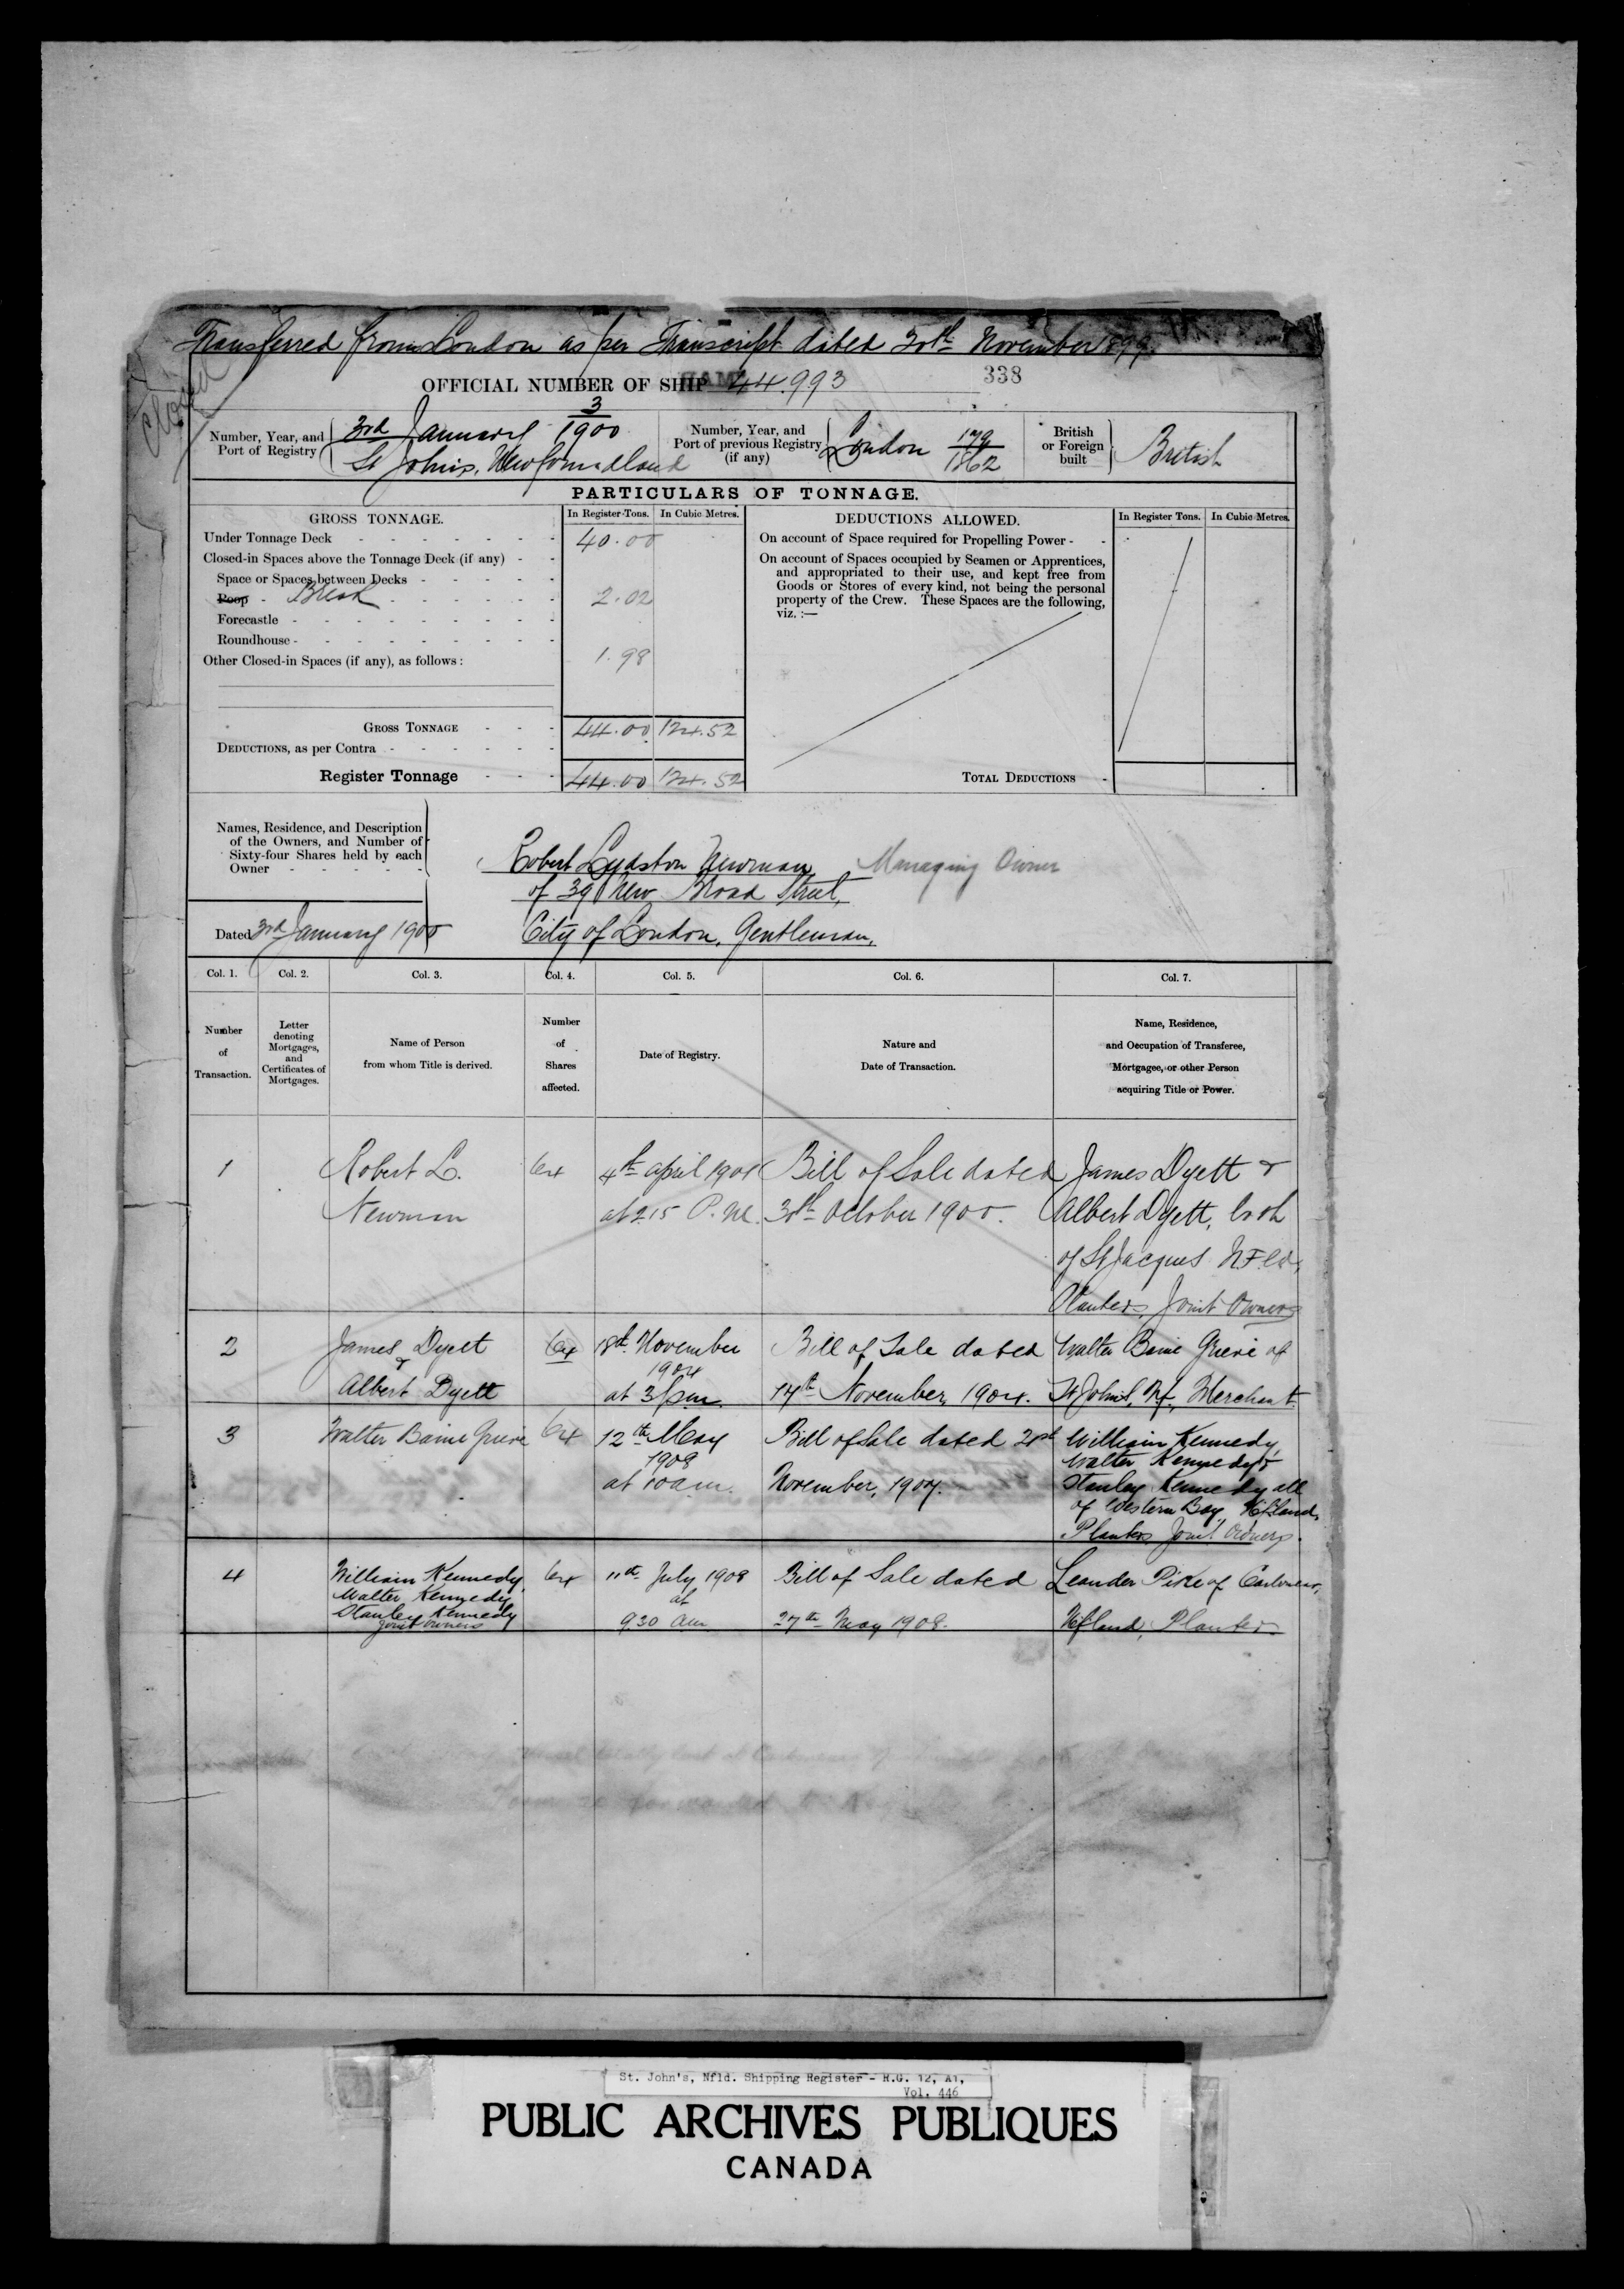 Transferred from London as per Transcript dated 30th November 1899.
Closed
OFFICIAL NUMBER OF SHIP 44.993
338
Number, Year, and Port of Registry
3rd January 3/1900
St Johns, Newfoundland
Number, Year, and Port of previous Registry (if any)
London 179/1862
British or Foreign built
British
PARTICULARS OF TONNAGE.
GROSS TONNAGE. In Register Tons. In Cubic Metres.
Under Tonnage Deck 40.00
Closed-in Spaces above the Tonnage Deck (if any)
Space or Spaces between Decks
Poop Break 2.02
Forecastle
Roundhouse
Other Closed-in Spaces (if any), as follows : 1.98
GROSS TONNAGE 44.00 124.52
DEDUCTIONS, as per Contra
Register Tonnage 44.00 124.52
DEDUCTIONS ALLOWED. In Register Tons. In Cubic Metres.
On account of Space required for Propelling Power
On account of Spaces occupied by Seamen or Apprentices,
and appropriated to their use, and kept free from
Goods or Stores of every kind, not being the personal
property of the Crew. These Spaces are the following,
viz. :—
TOTAL DEDUCTIONS
Names, Residence, and Description
of the Owners, and Number of
Sixty-four Shares held by each
Owner
Robert Lydston Newman Managing Owner
of 39 New Broad Street,
City of London, Gentleman,
Dated 3rd January 1900
Col. 1. Col. 2. Col. 3. Col. 4. Col. 5. Col. 6. Col. 7.
Number of Transaction.
Letter denoting Mortgages, and Certificates of Mortgages.
Name of Person from whom Title is derived.
Number of Shares affected.
Date of Registry.
Nature and Date of Transaction.
Name, Residence, and Occupation of Transferee, Mortgagee, or other Person acquiring Title or Power.
1 Robert L. 64 4th April 1901 Bill of Sale dated James Dyett &
Newman at 2.15 P.M. 30th October 1900. Albert Dyett, both
of St Jacques NFld,
Planters, Joint Owners
2 James Dyett 64 18th November Bill of Sale dated Walter Baine Grieve of
& 1904
Albert Dyett at 3 p.m. 14th November, 1904. St John's, Nf, Merchant.
3 Walter Baine Grieve 64 12th May Bill of Sale dated 21st William Kennedy,
1908 Walter Kennedy &
at 10 a.m. November, 1907. Stanley Kennedy all
of Western Bay, Nfland,
Planters Joint Owners.
4 William Kennedy, 64 11th July 1908 Bill of Sale dated Leander Pike of Carbonear,
Walter Kennedy, at
Stanley Kennedy 9.30 am 27th May 1908. Nfland, Planter.
Joint Owners
St. John's, Nfld. Shipping Register - R.G. 12, A1,
Vol. 446
PUBLIC ARCHIVES PUBLIQUES
CANADA